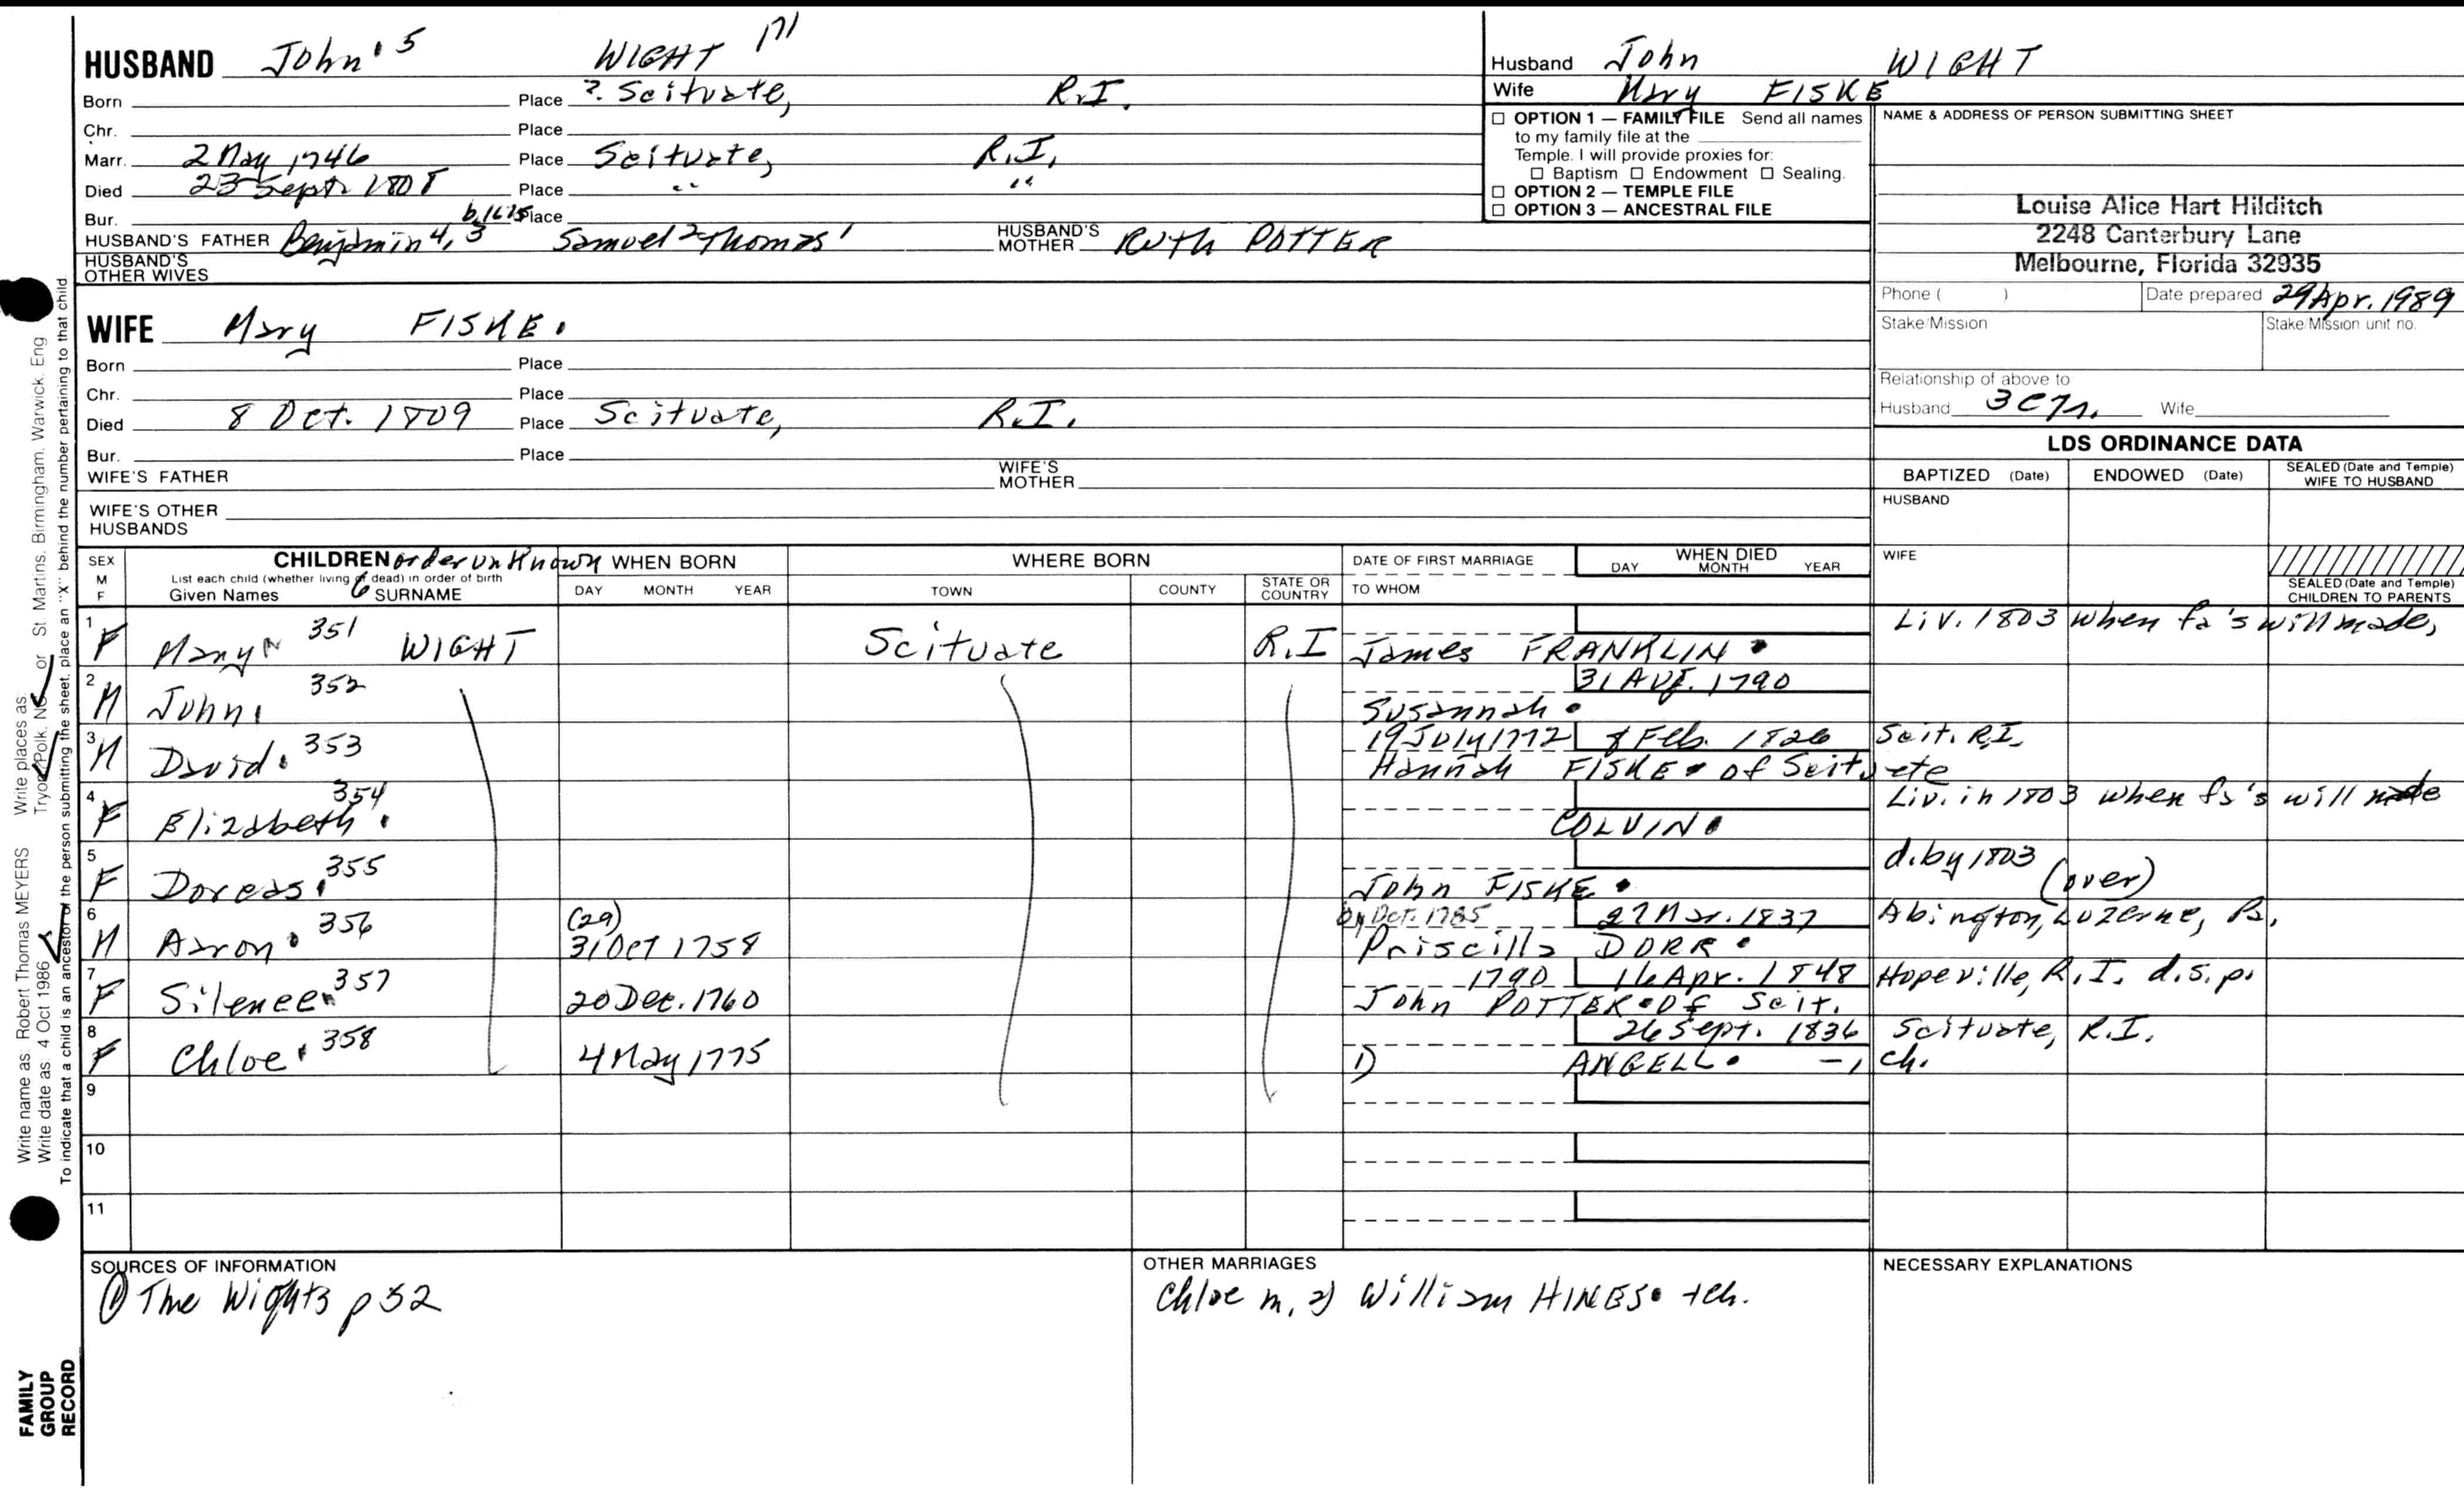 HUSBAND John 5 WIGHT 171
Born Place ?. Scituate, R.I.
Chr. Place
Marr. 2 May 1746 Place Scituate, R.I.
Died 23 Sept. 1808 Place " "
Bur. Place
HUSBAND'S FATHER Benjamin 4, 3 Samuel 2 Thomas 1 HUSBAND'S MOTHER Ruth POTTER
HUSBAND'S OTHER WIVES
WIFE Mary FISKE.
Born Place
Chr. Place
Died 8 Oct. 1809 Place Scituate, R.I.
Bur. Place
WIFE'S FATHER WIFE'S MOTHER
WIFE'S OTHER HUSBANDS
Husband John WIGHT
Wife Mary FISKE
☐ OPTION 1 — FAMILY FILE Send all names
to my family file at the
Temple. I will provide proxies for:
☐ Baptism ☐ Endowment ☐ Sealing.
☐ OPTION 2 — TEMPLE FILE
☐ OPTION 3 — ANCESTRAL FILE
NAME & ADDRESS OF PERSON SUBMITTING SHEET
Louise Alice Hart Hilditch
2248 Canterbury Lane
Melbourne, Florida 32935
Phone ( ) Date prepared 29 Apr. 1989
Stake/Mission Stake/Mission unit no.
Relationship of above to
Husband Wife
LDS ORDINANCE DATA
BAPTIZED (Date) ENDOWED (Date) SEALED (Date and Temple) WIFE TO HUSBAND
HUSBAND
WIFE
SEALED (Date and Temple) CHILDREN TO PARENTS
SEX M F
CHILDREN order unknown
List each child (whether living or dead) in order of birth
Given Names 6 SURNAME
WHEN BORN
DAY MONTH YEAR
WHERE BORN
TOWN COUNTY STATE OR COUNTRY
DATE OF FIRST MARRIAGE
TO WHOM
WHEN DIED
DAY MONTH YEAR
1 F Mary 351 WIGHT Scituate R.I James FRANKLIN. Liv. 1803 when fa's will made,
2 M John. 352 31 Aug. 1790
Susannah.
3 M David. 353 19 July 1772 8 Feb. 1826 Scit. R.I.
Hannah FISKE. of Scituate
4 F Elizabeth. 354 COLVIN. Liv. in 1803 when fa's will made
5 F Dorcas. 355 John FISKE. d. by 1803 (over)
6 M Aaron. 356 (29) 31 Oct 1758 Oct. 1785 27 Mar. 1837 Abington, Luzerne, Pa.
Priscilla DORR.
7 F Silence 357 20 Dec. 1760 1790 16 Apr. 1848 Hopeville, R.I. d.s.p.
John POTTER. of Scit.
8 F Chloe. 358 4 May 1775 26 Sept. 1836 Scituate, R.I.
1) ANGELL. -, ch.
9
10
11
SOURCES OF INFORMATION
① The Wights p 52
OTHER MARRIAGES
Chloe m. 2) William HINES. +ch.
NECESSARY EXPLANATIONS
Write name as: Robert Thomas MEYERS Write places as:
Write date as: 4 Oct 1986 Tryon, Polk, NC or St Martins, Birmingham, Warwick, Eng
To indicate that a child is an ancestor of the person submitting the sheet, place an "X" behind the number pertaining to that child
FAMILY
GROUP
RECORD